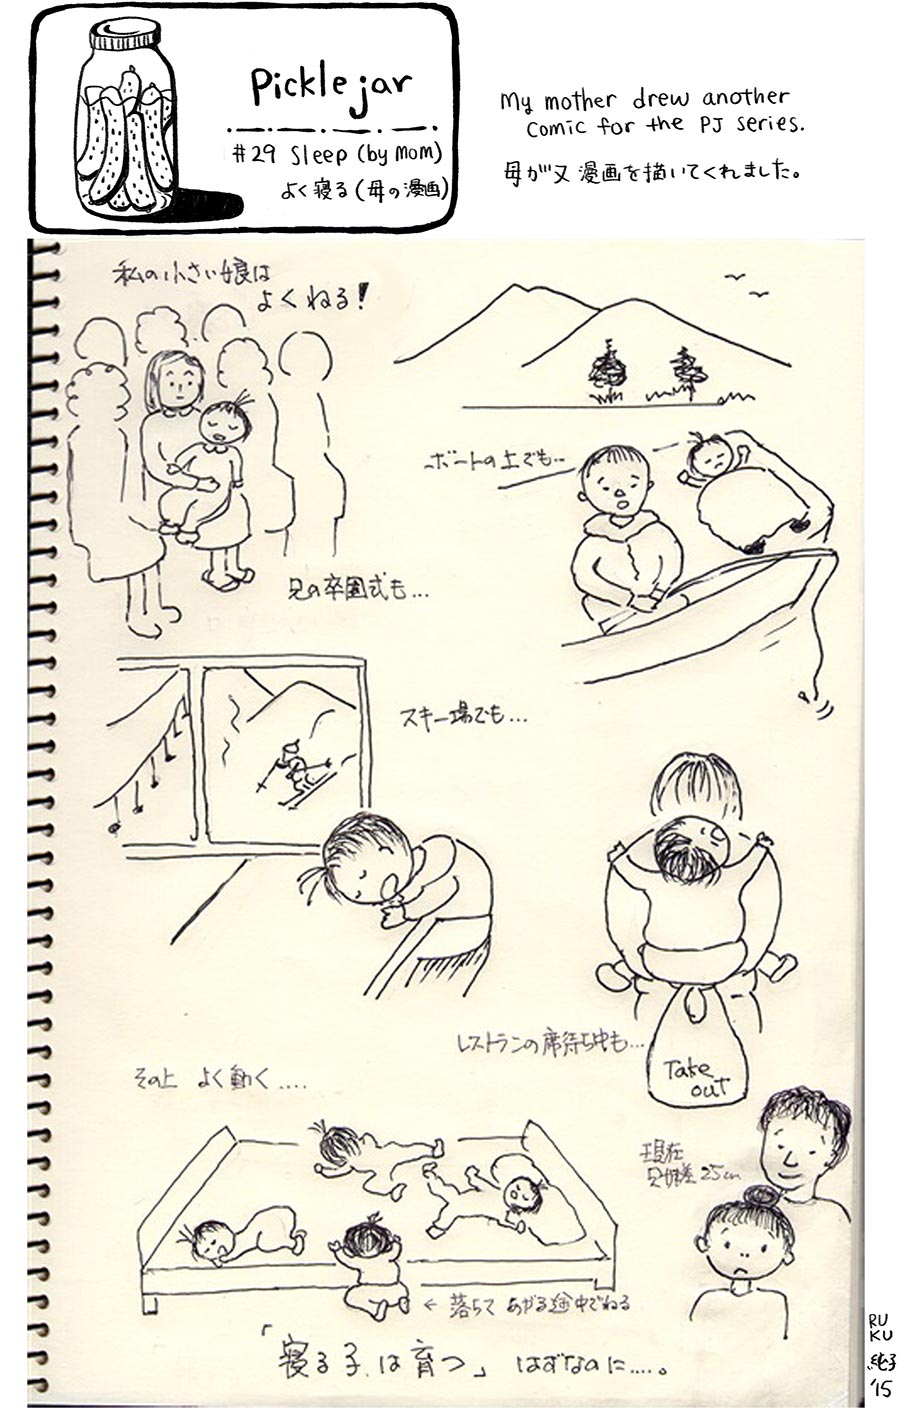 Pickle jar
#29 Sleep (by Mom)
よく寝る(母の漫画)
My mother drew another
comic for the PJ series.
母が又漫画を描いてくれました。
私の小さい娘は
よくねる!
兄の卒園式も…
ボートの上でも…
スキー場でも…
レストランの席待ち中も…
Take
out
その上 よく動く....
← 落ちて あがる途中でねる
現在
兄妹差25cm
「寝る子は育つ」はずなのに....。
RU
KU
純子
'15